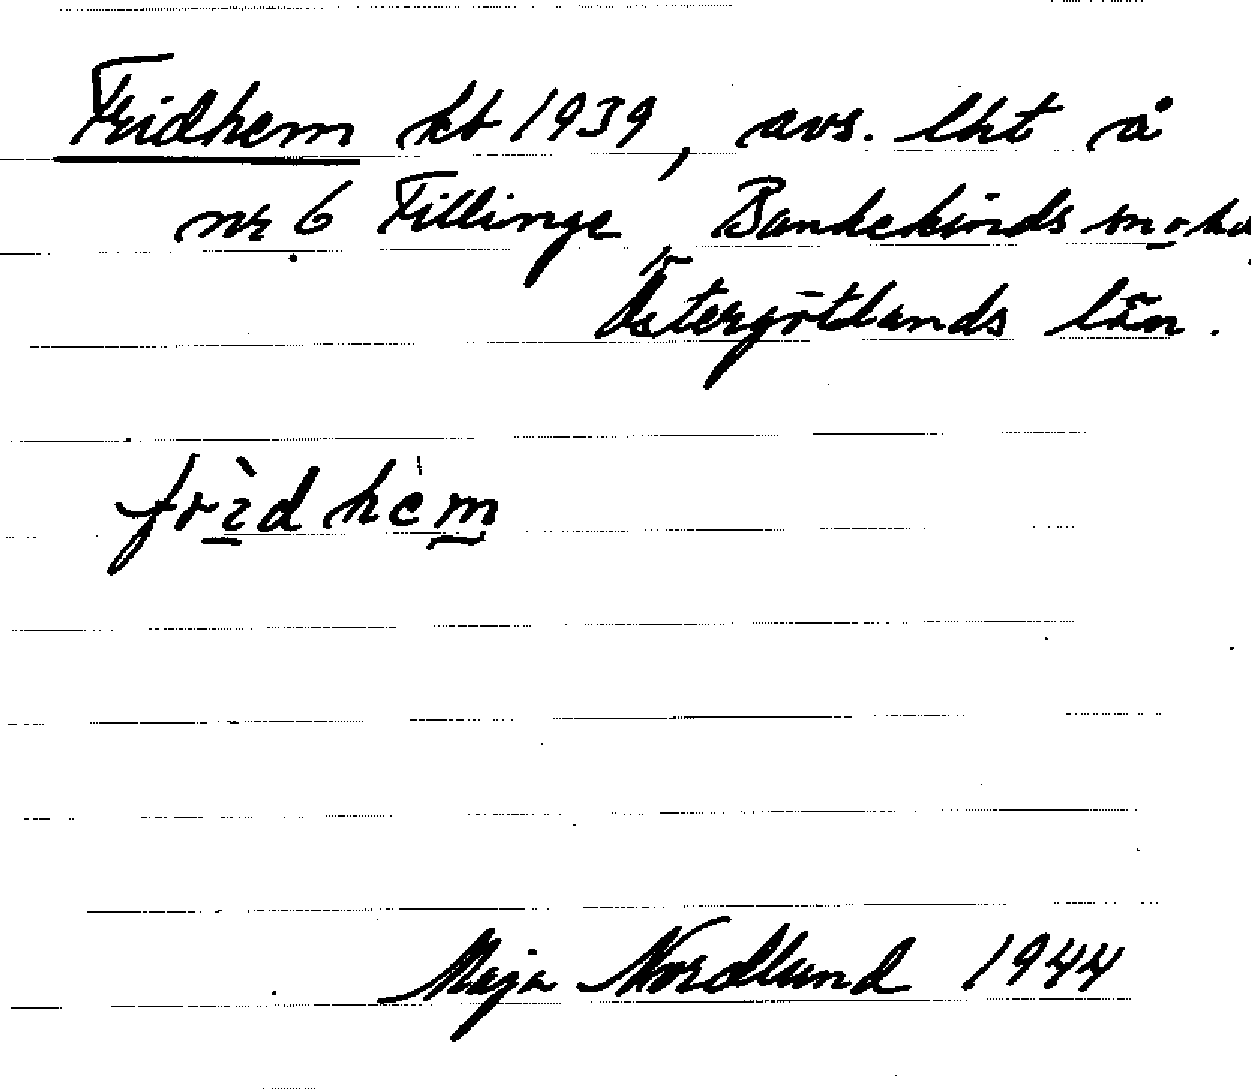 Fridhem kb 1939, avs. lht å
nr 6 Fillinge, Bankekinds sn o. hd,
Östergötlands län.
frìdhèm
Maja Nordlund 1944